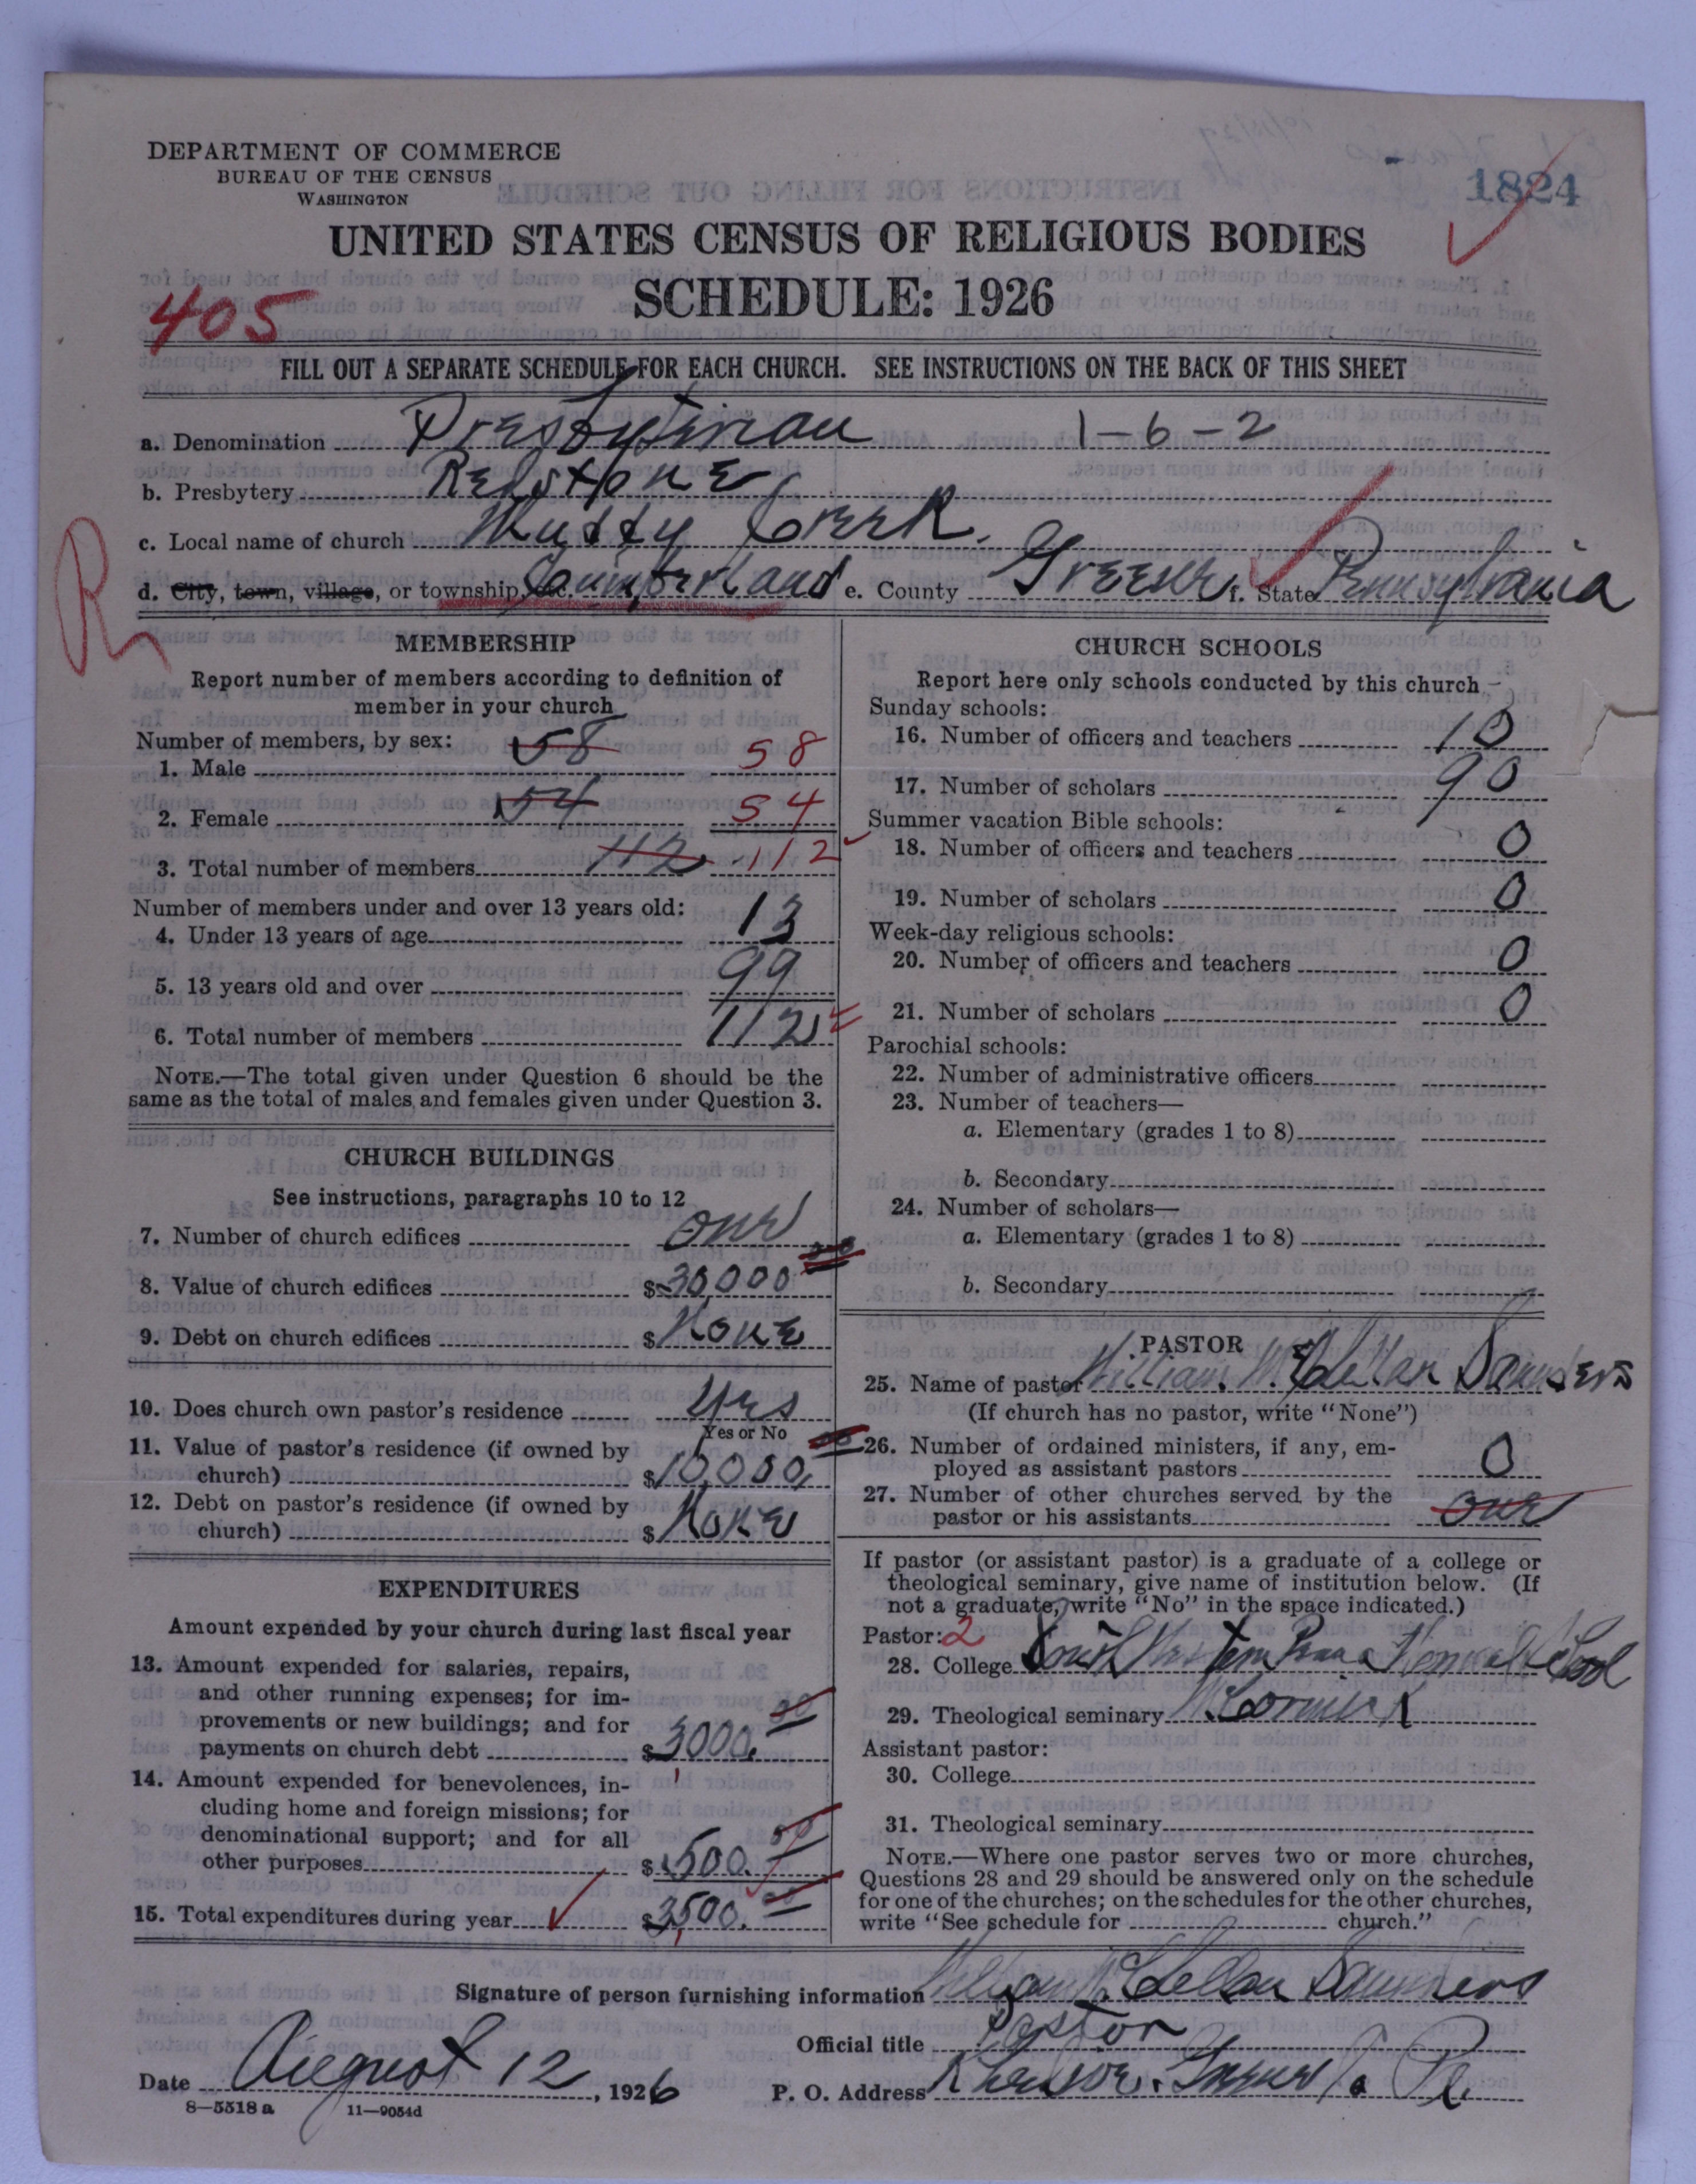 DEPARTMENT OF COMMERCE
BUREAU OF THE CENSUS
WASHINGTON
1824
UNITED STATES CENSUS OF RELIGIOUS BODIES
SCHEDULE: 1926
405
FILL OUT A SEPARATE SCHEDULE FOR EACH CHURCH. SEE INSTRUCTIONS ON THE BACK OF THIS SHEET
a. Denomination Presbyterian 1-6-2
b. Presbytery Redstone
c. Local name of church Muddy Creek.
R
d. City, town, village, or township, etc. Cumberland e. County Greene f. State Pennsylvania
MEMBERSHIP
Report number of members according to definition of
member in your church
Number of members, by sex:
1. Male 58 58
2. Female 54 54
3. Total number of members 112 112
Number of members under and over 13 years old:
4. Under 13 years of age 13
5. 13 years old and over 99
6. Total number of members 112
NOTE.—The total given under Question 6 should be the
same as the total of males and females given under Question 3.
CHURCH BUILDINGS
See instructions, paragraphs 10 to 12
7. Number of church edifices one
8. Value of church edifices $30,000 00
9. Debt on church edifices $ None
10. Does church own pastor's residence Yes
Yes or No
11. Value of pastor's residence (if owned by
church) $10,000, 00
12. Debt on pastor's residence (if owned by
church) $ None
EXPENDITURES
Amount expended by your church during last fiscal year
13. Amount expended for salaries, repairs,
and other running expenses; for im-
provements or new buildings; and for
payments on church debt $3000. 00
14. Amount expended for benevolences, in-
cluding home and foreign missions; for
denominational support; and for all
other purposes $500. 00
15. Total expenditures during year $3,500. 00
CHURCH SCHOOLS
Report here only schools conducted by this church
Sunday schools:
16. Number of officers and teachers 10
17. Number of scholars 90
Summer vacation Bible schools:
18. Number of officers and teachers 0
19. Number of scholars 0
Week-day religious schools:
20. Number of officers and teachers 0
21. Number of scholars 0
Parochial schools:
22. Number of administrative officers
23. Number of teachers—
a. Elementary (grades 1 to 8)
b. Secondary
24. Number of scholars—
a. Elementary (grades 1 to 8)
b. Secondary
PASTOR
25. Name of pastor William McClellan Saunders
(If church has no pastor, write "None")
26. Number of ordained ministers, if any, em-
ployed as assistant pastors 0
27. Number of other churches served by the
pastor or his assistants one
If pastor (or assistant pastor) is a graduate of a college or
theological seminary, give name of institution below. (If
not a graduate, write "No" in the space indicated.)
Pastor: 2
28. College South Western Penna Normal School
29. Theological seminary McCormick
Assistant pastor:
30. College
31. Theological seminary
NOTE.—Where one pastor serves two or more churches,
Questions 28 and 29 should be answered only on the schedule
for one of the churches; on the schedules for the other churches,
write "See schedule for church."
Signature of person furnishing information William McClellan Saunders
Official title Pastor
Date August 12, 1926 P. O. Address Pa.
8—5518 a 11—9054d